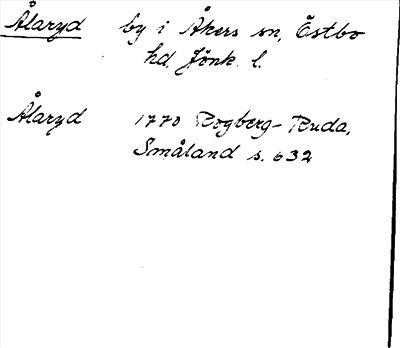 Ålaryd by i Åkers sn, Östbo
hd. Jönk. l.
Ålaryd 1770 Rogberg-Ruda,
Småland s. 632